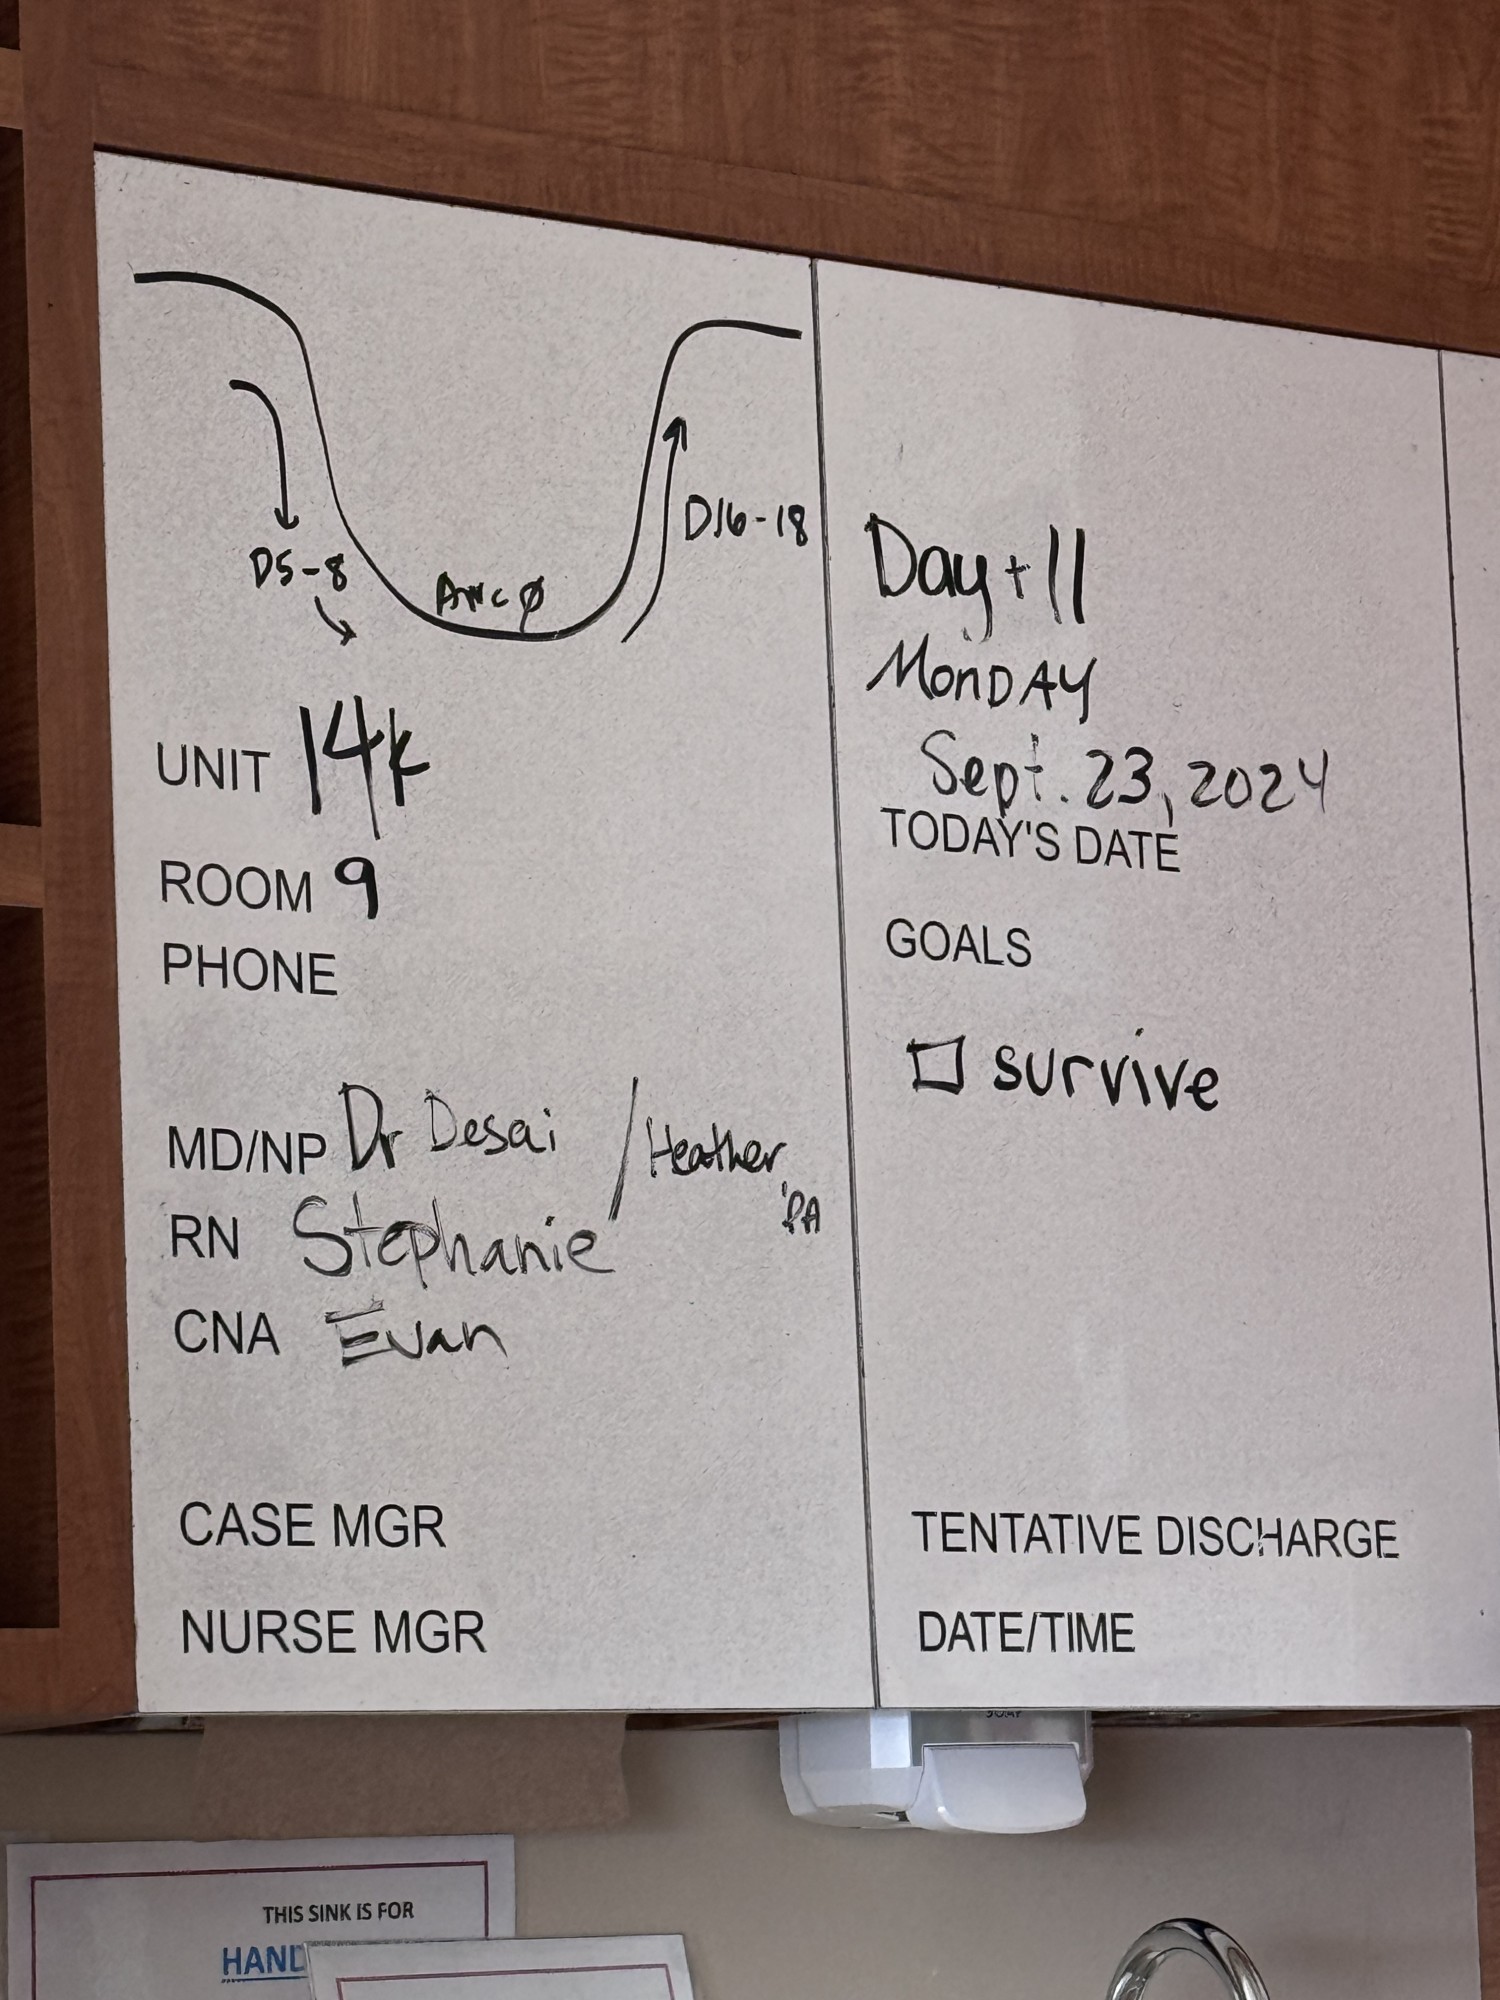 D5-8
ANC Ø
D16-18
UNIT 14K
ROOM 9
PHONE
MD/NP Dr Desai / Heather, PA
RN Stephanie
CNA Evan
CASE MGR
NURSE MGR
Day +11
MonDAY
Sept. 23, 2024
TODAY'S DATE
GOALS
□ survive
TENTATIVE DISCHARGE
DATE/TIME
SOAP
THIS SINK IS FOR
HAND